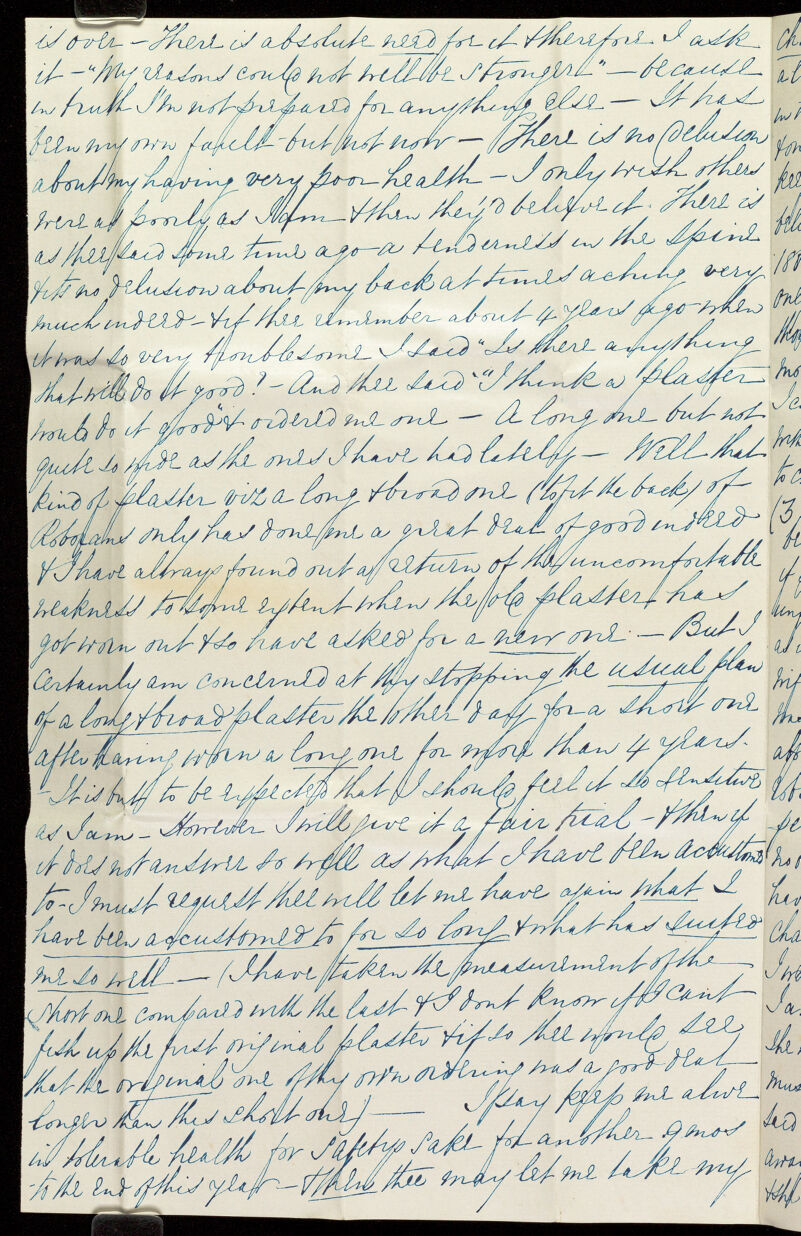 is over – There is absolute need for it & therefore I ask
it – "My reasons could not well be stronger" – because
in truth I'm not prepared for anything else – It has
been my own fault – but not now – There is no delusion
about my having very poor health – I only wish others
were as poorly as I am & then they'd believe it. There is
as thee said some time ago a tenderness in the spine
& it's no delusion about my back at times aching very
much indeed – & if thee remember about 4 years ago when
it was so very troublesome I said "Is there anything
that will do it good? – And thee said "I think a plaster
would do it good" & ordered me one – A long one but not
quite so wide as the ones I have had lately – Well that
kind of plaster viz a long & broad one (to fit the back) of
Roborans only has done me a great deal of good indeed
& I have always found out a return of the uncomfortable
weakness to some extent when the old plaster has
got worn out & so have asked for a new one – But I
certainly am concerned at thy stopping the usual plan
of a long & broad plaster the other day for a short one
after having worn a long one for more than 4 years.
– It is but to be expected that I should feel it so sensitive
as I am – However I will give it a fair trial – & then if
it does not answer so well as what I have been accustomed
to – I must request thee will let me have again what I
have been accustomed to for so long & what has suited
me so well – (I have taken the measurement of the
short one compared with the last & I dont know if I cant
fish up the first original plaster & if so thee would see
that the original one of thy own ordering was a good deal
longer than this short one) – I say keep me alive
in tolerable health for safetys sake for another 9 mos
to the end of this year – & then thee may let me take my